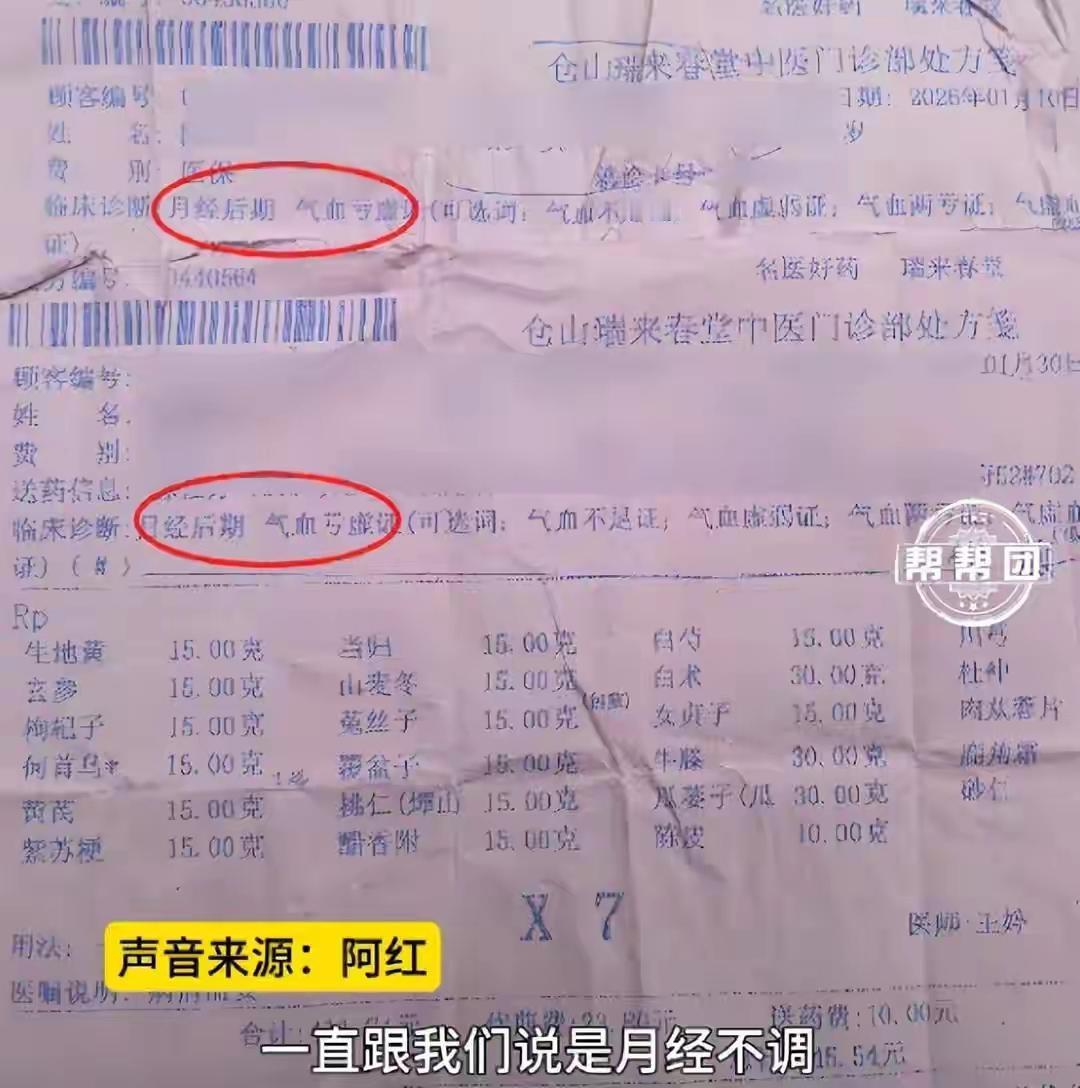 名医好药 瑞来春堂
仓山瑞来春堂中医门诊部处方笺
顾客编号
日期: 2026年01月10日
姓 名:
岁
费 别: 医保
临床诊断 月经后期 气血亏虚证(可选词: 气血不足证; 气血虚弱证; 气血两亏证; 气虚血
证)
方编号: 0440564
名医好药 瑞来春堂
仓山瑞来春堂中医门诊部处方笺
顾客编号:
01月30日
姓 名:
费 别:
送药信息:
临床诊断: 月经后期 气血亏虚证(可选词: 气血不足证; 气血虚弱证; 气血两亏证; 气虚血
证)
帮帮团
Rp
生地黄 15.00克 当归 15.00克 白芍 15.00克 川芎
玄参 15.00克 山麦冬 15.00克 白术 30.00克 杜仲
枸杞子 15.00克 菟丝子 15.00克 女贞子 15.00克 肉苁蓉片
何首乌* 15.00克 覆盆子 15.00克 牛膝 30.00克 鹿角霜
黄芪 15.00克 桃仁(燀山) 15.00克 瓜蒌子(瓜 30.00克 砂仁
紫苏梗 15.00克 醋香附 15.00克 陈皮 10.00克
X 7
医师:王妗
用法:
声音来源:阿红
医嘱说明:
合计: 送药费:10.00元
一直跟我们说是月经不调